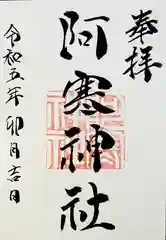 奉拝
阿寒神社
令和五年卯月吉日